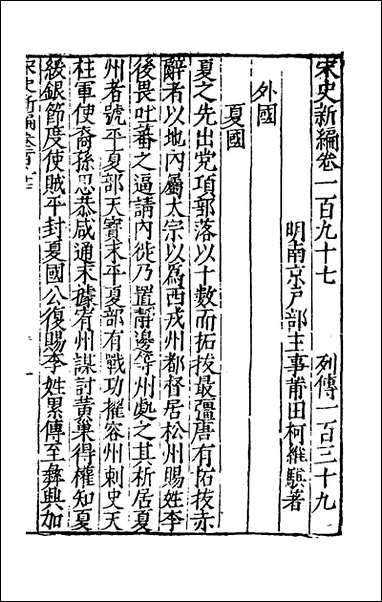 宋史新編卷一百九十七　列傳一百三十九
明南京戸部主事莆田柯維騏著
外國
夏國
夏之先出党項部落以十數而拓拔最彊唐有拓拔赤
辭者以地内屬太宗以為西戎州都督居松州賜姓李
後畏吐蕃之逼請内徙乃置靜邊等州處之其析居夏
州者號平夏部天寶末平夏部有戰功擢容州刺史天
柱軍使裔孫思恭咸通末據宥州謀討黃巢得權知夏
綏銀節度使賊平封夏國公復賜李姓累傳至彝興加
宋史新編卷百九十七